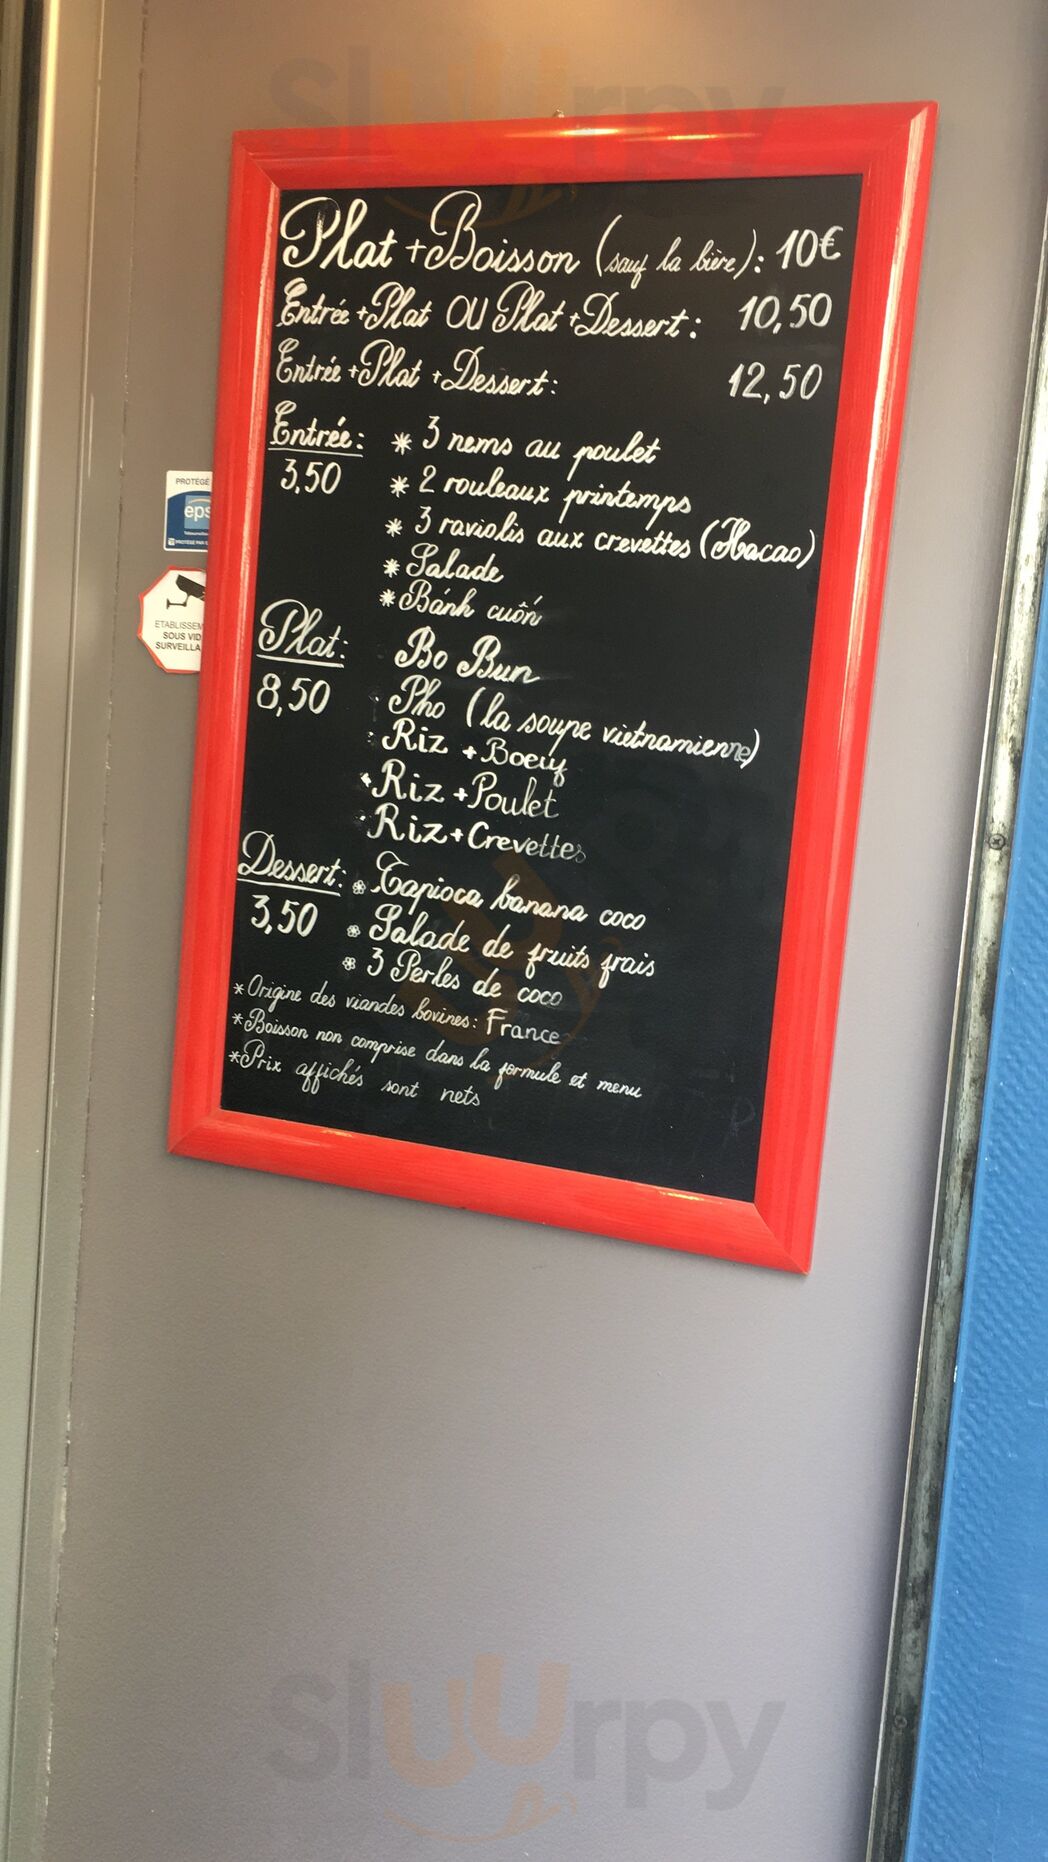 Plat + Boisson (sauf la bière): 10€
Entrée + Plat OU Plat + Dessert: 10,50
Entrée + Plat + Dessert: 12,50
Entrée: * 3 nems au poulet
3,50 * 2 rouleaux printemps
* 3 raviolis aux crevettes (Hacao)
* Salade
* Bánh cuốn
Plat: Bo Bun
8,50 Pho (la soupe vietnamienne)
Riz + Boeuf
Riz + Poulet
Riz + Crevettes
Dessert: Tapioca banana coco
3,50 Salade de fruits frais
3 Perles de coco
* Origine des viandes bovines: France
* Boisson non comprise dans la formule et menu
* Prix affichés sont nets
PROTÉGÉ
eps
ETABLISSEM
SOUS VID
SURVEILLA
Sluurpy
Sluurpy